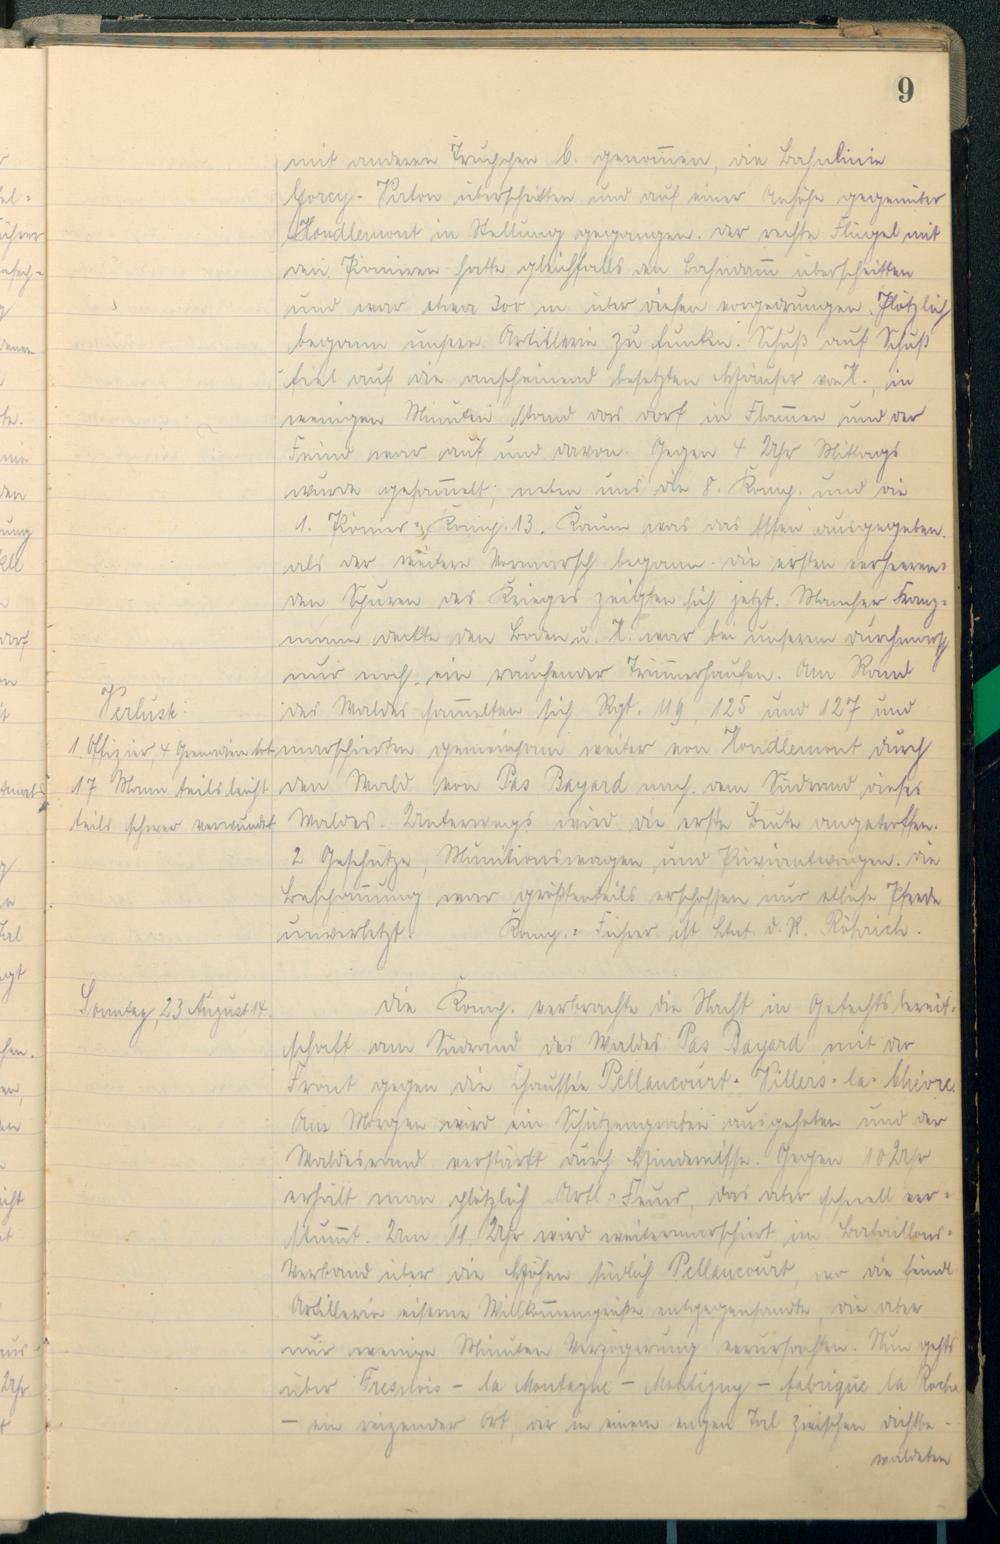 9
mit anderen Truppen b. genom̅en, die Bahnlinie
Gorcy - Virton überschritten und auf einer Anhöhe gegenüber
Hondlemont in Stellung gegangen. Der rechte Flügel mit
den Pionieren hatte gleichfalls den Bahndam̅ überschritten
und war etwa 300 m über diesen vorgedrungen. Plötzlich
begann unsere Artillerie zu funken. Schuß auf Schuß
fiel auf die anscheinend besetzten Häuser von H., in
wenigen Minuten stand das Dorf in Flam̅en und der
Feind war auf und davon. Gegen 4 Uhr Mittags
wurde gesam̅elt; neben uns die 8. Komp. und die
1. Pionier-Komp. 13. Kaum war das Essen ausgegeben.
als der weitere Vormarsch begann. Die ersten verheeren-
den Spuren des Krieges zeigten sich jetzt. Mancher Franz-
mann deckte den Boden u. H. war bei unserem Durchmarsch
nur noch ein rauchender Trüm̅erhaufen. Am Rand
des Waldes sam̅elten sich Rgt. 119, 125 und 127 und
marschierten gemeinsam weiter von Hondlemont durch
den Wald von Pas Bayard nach dem Südrand dieses
Waldes. Unterwegs wird die erste Beute angetroffen.
2 Geschütze, Munitionswagen und Proviantwagen. Die
Bespan̅ung war größtenteils erschossen nur etliche Pferde
unverletzt. Komp.-Führer ist Ltnt. d. R. Röhrich.
Verluste:
1 Offizier, 4 Grenadiere tot
17 Mann teils leicht
teils schwer verwundet
Sonntag, 23 August 14.
Die Komp. verbrachte die Nacht in Gefechtsbereit-
schaft am Südrand des Waldes Pas Bayard mit der
Front gegen die Chaussée Pellancourt - Villers - la - Chèvre.
Am Morgen wird ein Schützengraben ausgehoben und der
Waldesrand verstärkt durch Hindernisse. Gegen 10 Uhr
erhält man plötzlich Artl.-Feuer, das aber schnell ver-
stum̅t. Um 11 Uhr wird weitermarschiert im Bataillons-
Verband über die Höhen südlich Pellancourt, wo die feindl.
Artillerie eiserne Willkom̅engrüße entgegensandte, die aber
nur wenige Minuten Verzögerung verursachten. Nun gehts
über Fresnois - la Montagne - Montigny - fabrique la Roche
- ein reizender Ort, der in einem engen Tal zwischen dichtbe-
waldeten